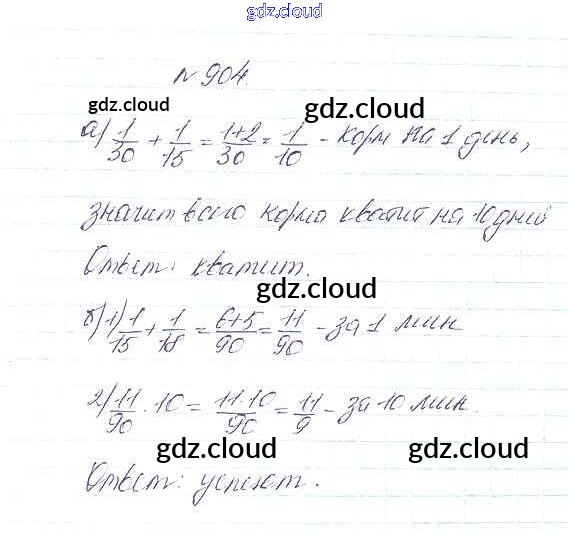 gdz.cloud
gdz.cloud
N 904
gdz.cloud gdz.cloud
а) 1/30 + 1/15 = 1+2/30 = 1/10 - корм на 1 день,
значит всего корма хватит на 10 дней
Ответ: хватит.
gdz.cloud
б) 1) 1/15 + 1/18 = 6+5/90 = 11/90 - за 1 мин
2) 11/90 · 10 = 11·10/90 = 11/9 - за 10 мин.
gdz.cloud gdz.cloud
Ответ: успеют.